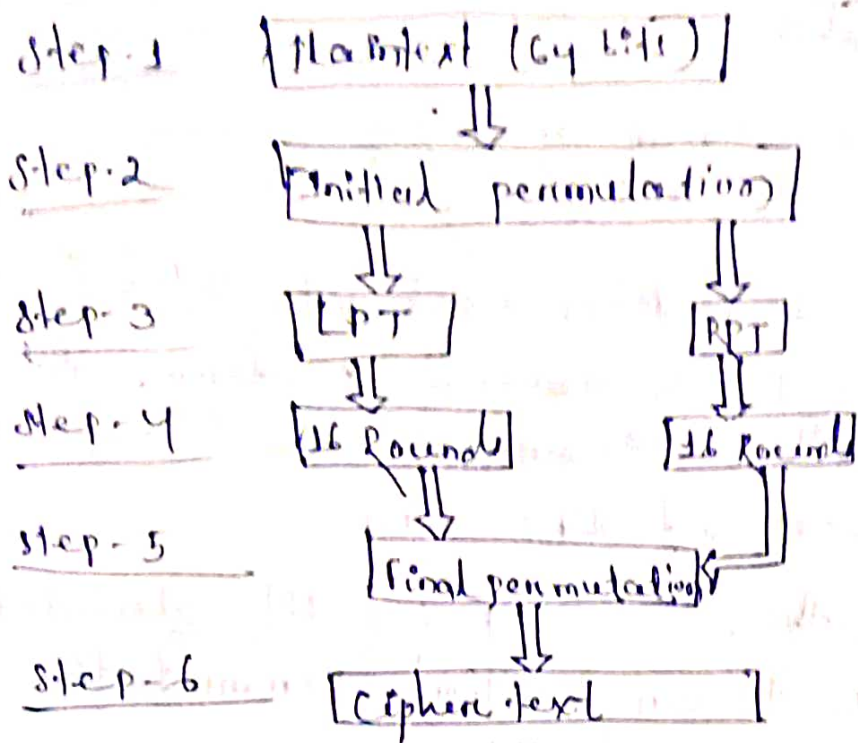 Step-1 Plaintext (64 bits)
Step-2 Initial permutation
Step-3 LPT RPT
Step-4 16 Rounds 16 Rounds
Step-5 Final permutation
Step-6 Cipher text